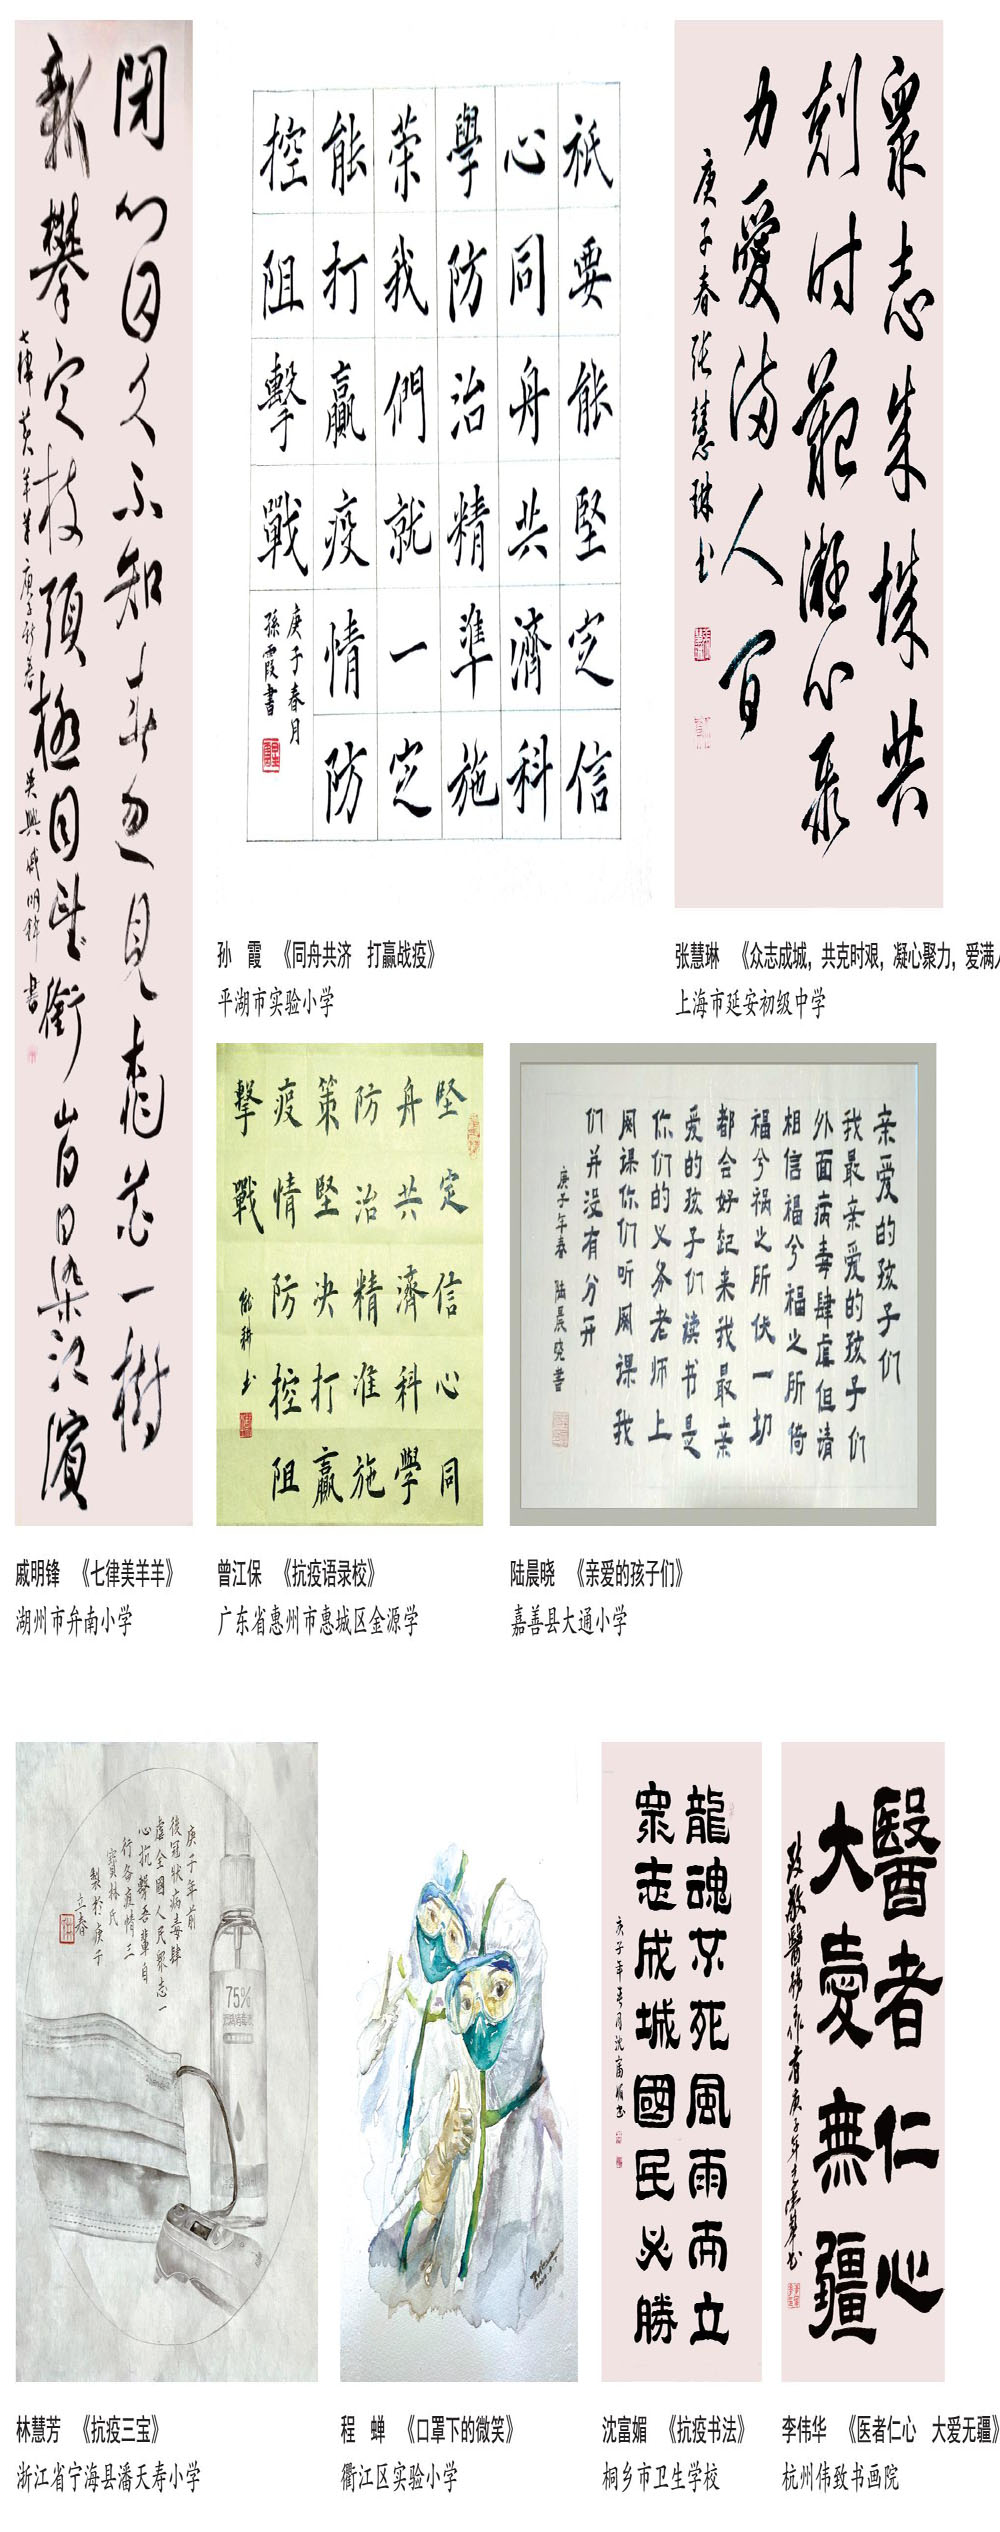 閉門囚久不知春忽見桃花一樹
新攀定枝頭極目望銜山白日染江濱
七律美羊羊 庚子新春 吴興戚明鋒書
祇要能堅定信
心同舟共濟科
學防治精準施
策我們就一定
能打贏疫情防
控阻擊戰
庚子春月
孫霞書
眾志成城共
剋时艱凝心聚
力愛满人间
庚子春张慧琳书
孙 霞 《同舟共济 打赢战疫》
平湖市实验小学
张慧琳 《众志成城，共克时艰，凝心聚力，爱满人
上海市延安初级中学
堅定信心同
舟共濟科學
防治精准施
策堅决打贏
疫情防控阻
擊戰
能耕书
亲爱的孩子们
我最亲爱的孩子们
外面病毒肆虐但请
相信福兮福之所倚
福兮祸之所伏一切
都会好起来我最亲
爱的孩子们读书是
你们的义务老师上
网课你们听网课我
们并没有分开
庚子年春 陆晨晓書
戚明锋 《七律美羊羊》
湖州市弁南小学
曾江保 《抗疫语录校》
广东省惠州市惠城区金源学
陆晨晓 《亲爱的孩子们》
嘉善县大通小学
庚子年前
後冠狀病毒肆
虐全國人民眾志一
心抗擊吾輩自
行备疫情三
寶林氏
製於庚子
立春
75%
龍魂不死風雨而立
眾志成城國民必勝
庚子年春月沈富媚书
醫者仁心
大愛無疆
致敬醫務工作者庚子年李偉華书
林慧芳 《抗疫三宝》
浙江省宁海县潘天寿小学
程 蝉 《口罩下的微笑》
衢江区实验小学
沈富媚 《抗疫书法》
桐乡市卫生学校
李伟华 《医者仁心 大爱无疆》
杭州伟致书画院